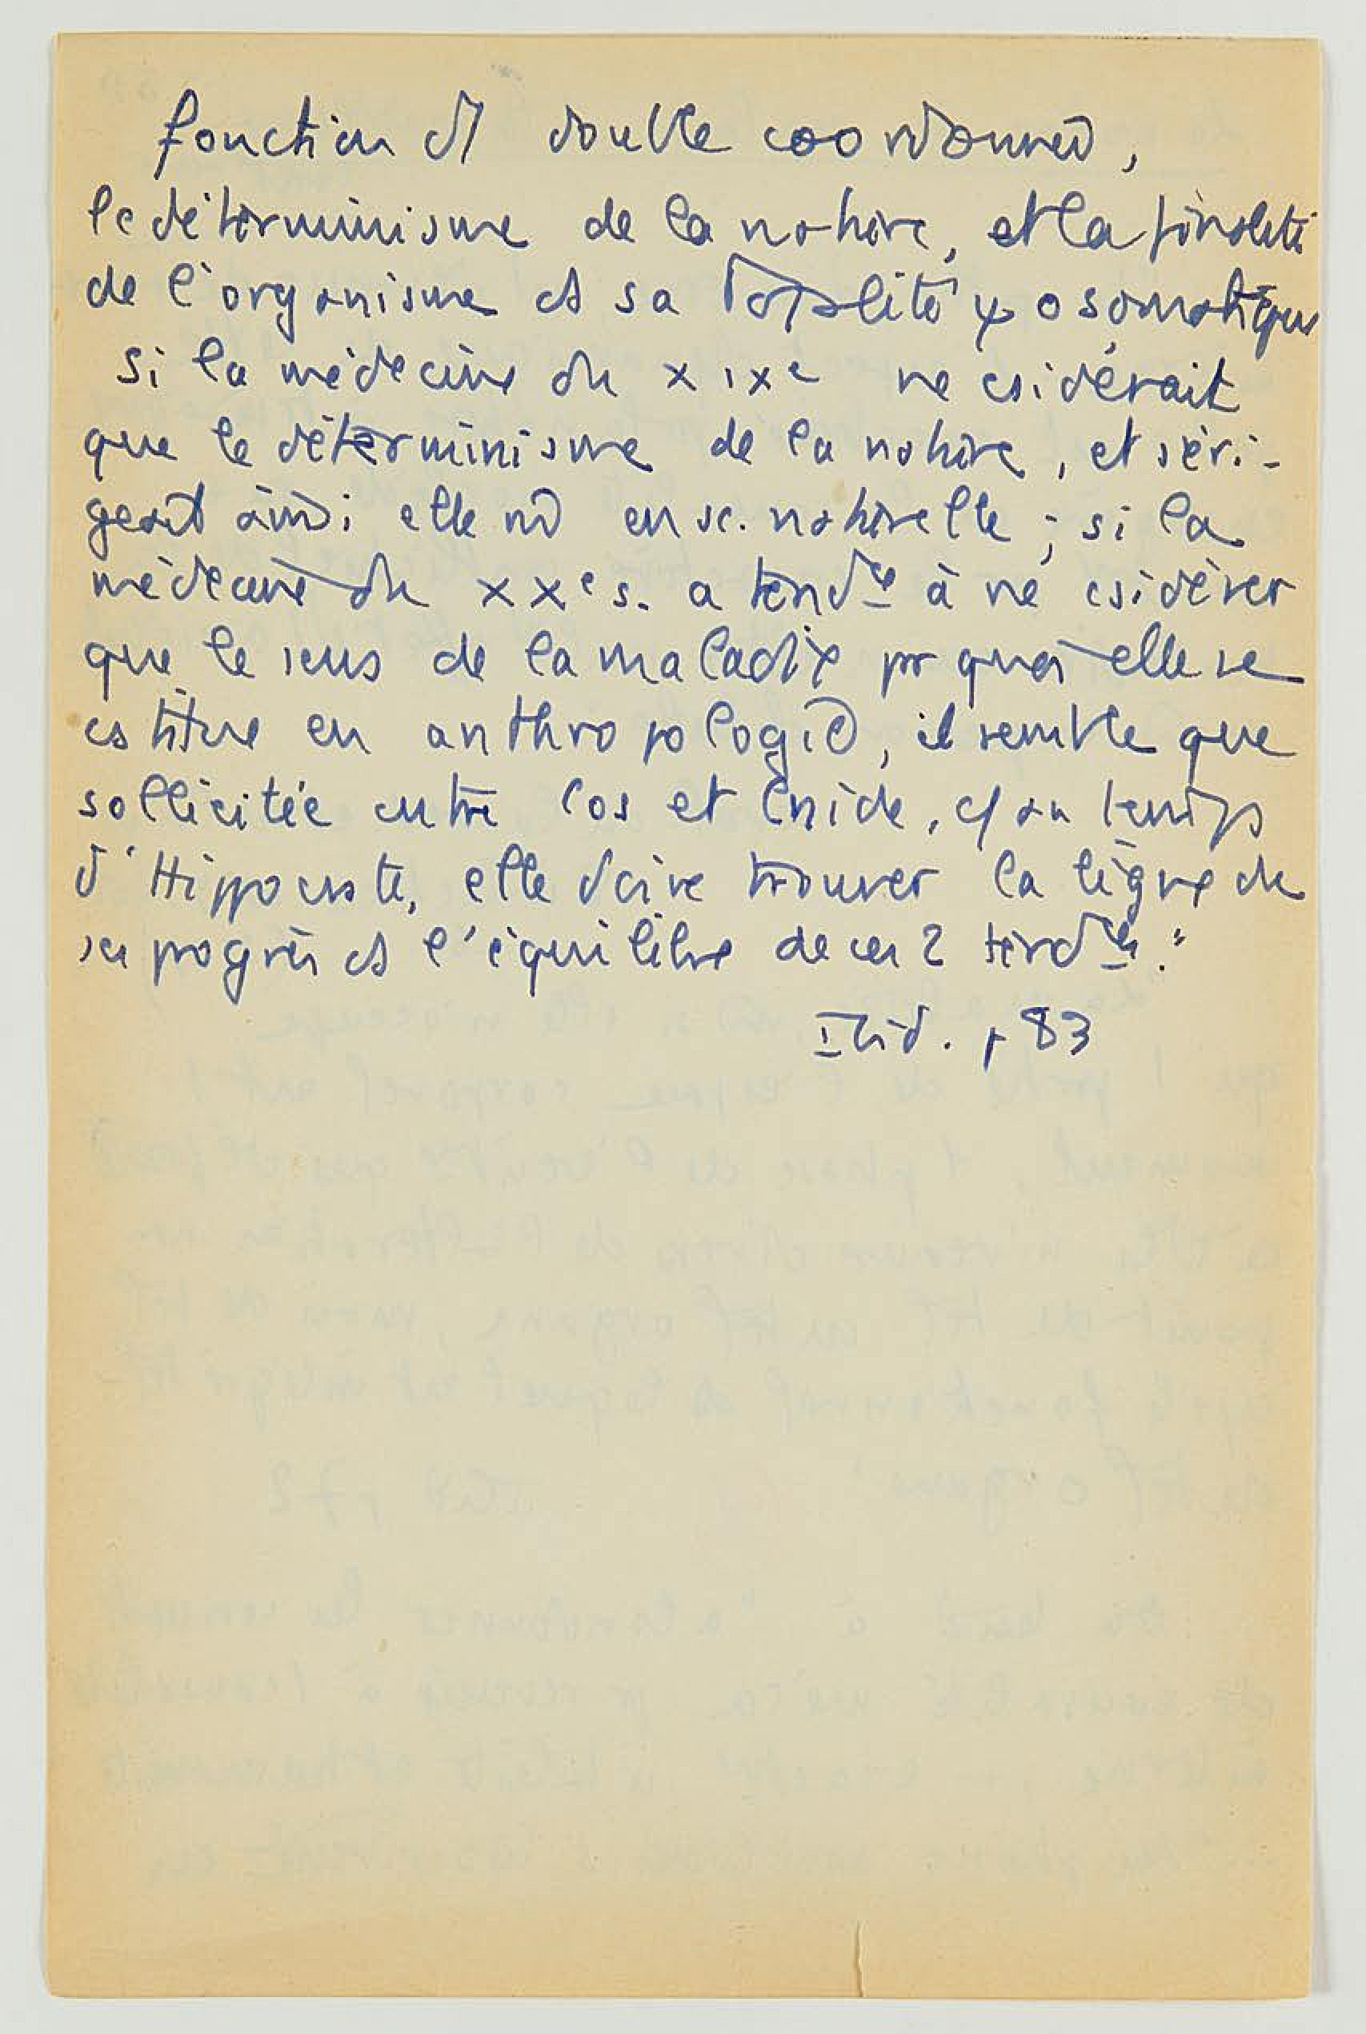 fonction d' double coordonnée,
le déterminisme de la nature, et la finalité
de l'organisme ds sa totalité psychosomatique
si la médecine du XIXe ne csidérait
que le déterminisme de la nature, et s'éri-
geait ainsi elle m̂ en sc. naturelle ; si la
médecine du XXe s. a tendce à ne csidérer
que le sens de la maladie pr quoi elle se
cstitue en anthropologie, il semble que
sollicitée entre Cos et Cnide, c/ au temps
d'Hippocrate, elle doive trouver la ligne de
ses progrès ds l'équilibre de ces 2 tendces."
Ibid. p 83